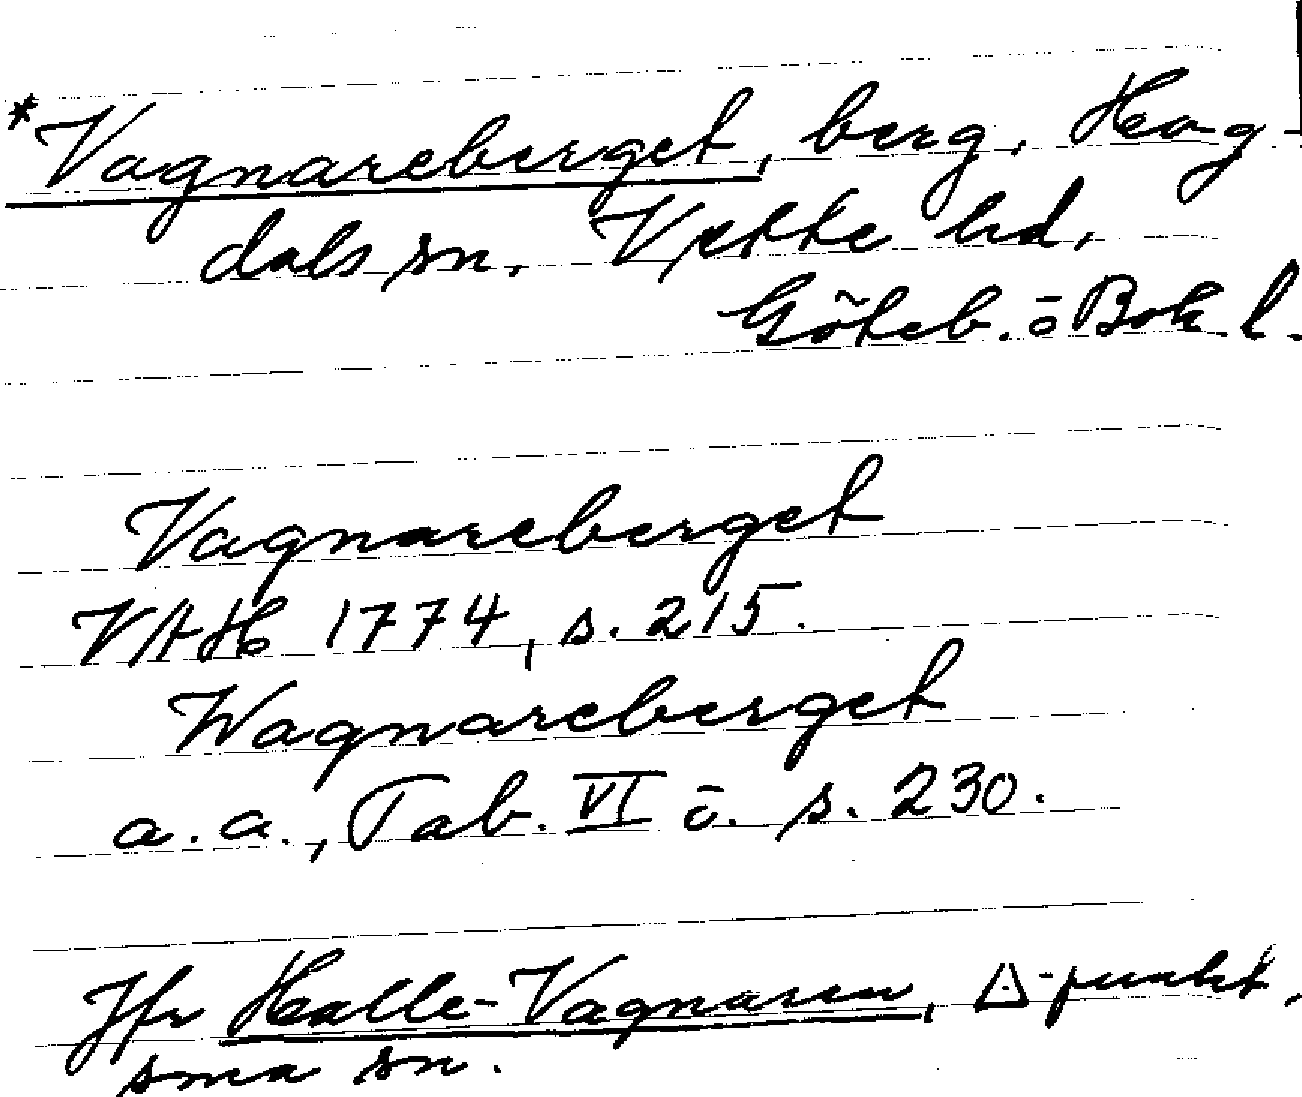 *Vagnareberget, berg, Hog-
dals sn. Vette hd,
Göteb. o Boh l.
Vagnareberget
VAH 1774, s. 215.
Wagnareberget
a.a., Tab. VI o. s. 230.
Jfr Halle-Vagnaren, △-punkt,
sma sn.